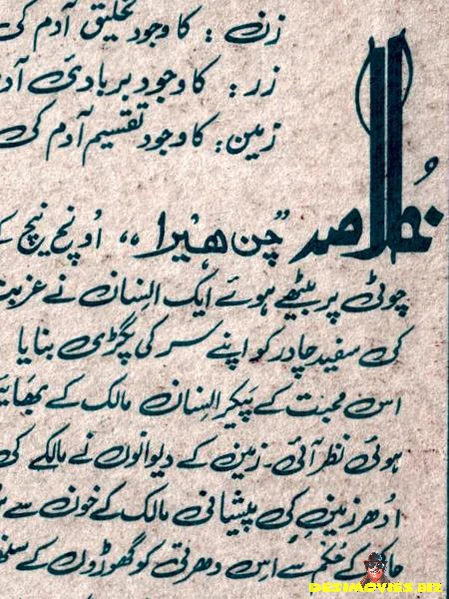 زن : کا وجود تخلیق آدم کی
زر : کا وجود بربادئ آد
زمین : کا وجود تقسیم آدم کی
خلاصہ
"چن ھیرا،، اُونچ نیچ کے
چوٹی پر بیٹھے ہوئے ایک انسان نے غربت
کی سفید چادر کو اپنے سر کی پگڑی بنایا
اس محبت کے پیکر انسان مالک کے بھائی
ہوئی نظر آئی۔ زمین کے دیوانوں نے مالکے کی
ادھر زمین کی پیشانی مالک کے خون سے
حاکم کے حُکم سے اس دھرتی کو گھوڑوں کے
DESIMOVIES.BIZ